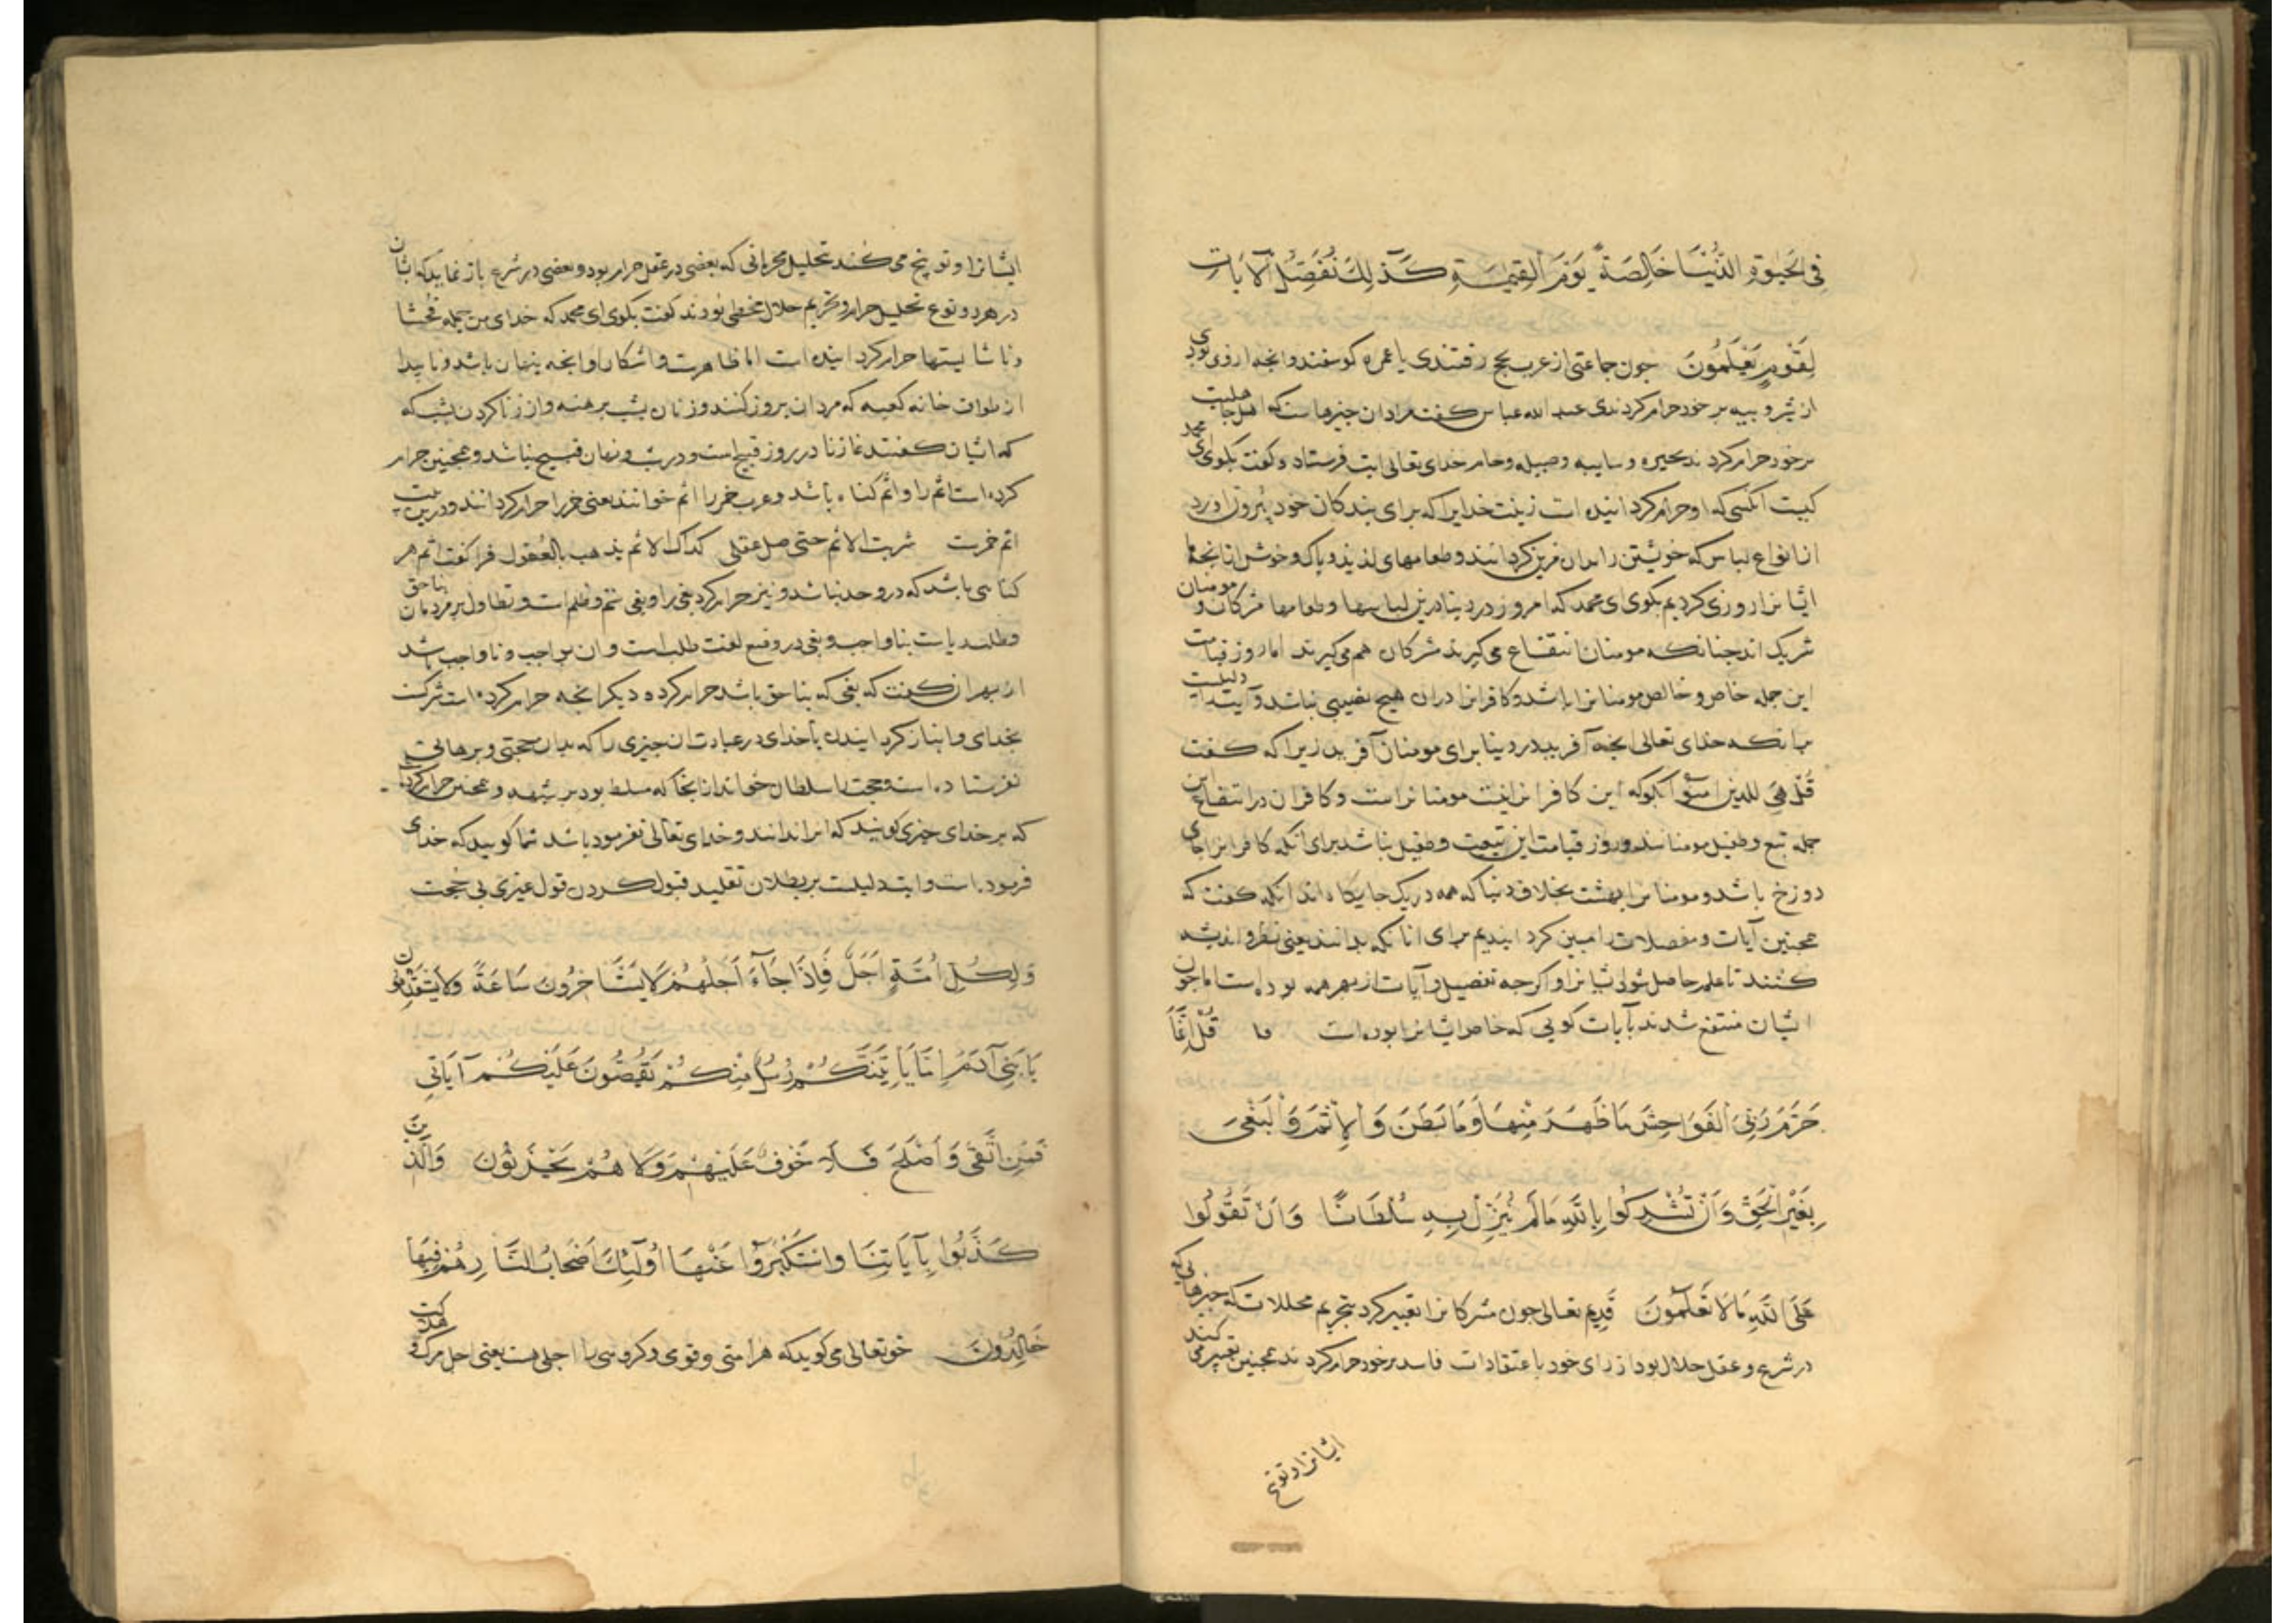 فِی الْحَیٰوةِ الدُّنْیَا خَالِصَةً یَوْمَ الْقِیٰمَةِ کَذٰلِكَ نُفَصِّلُ الْآیَاتِ
لِقَوْمٍ یَعْلَمُونَ جون جماعتی از عرب بحج رفتندی یا عمره کوسفند وانجه ازوی بودی
از شیر و بیه بر خود حرام کردندی عبد الله عباس کفت مراد ان جیزهاست که اهل جاهلیت
بر خود حرام کردند بحیره و سایبه و صیله و حام خدای تعالی ایت فرستاد و کفت بکوی ای محمد
کیست انکسی که او حرام کردانیده است زینت خدایرا که برای بندکان خود بیرون اورد
از انواع لباس که خویشتن را بدان مزین کردانند و طعامهای لذیذ و پاک و خوش از انجه ما
ایشانرا روزی کردیم بکوی ای محمد که امروز در دنیا درین لباسها و طعامها مشرکان و مومنان
شریک اند جنانکه مومنان انتفاع می کیرند مشرکان هم می کیرند اما روز قیامت
این جمله خاص و خالص مومنانرا باشد و کافرانرا دران هیج نصیبی نباشد و آیت دلیلست
برانکه خدای تعالی انجه آفرید در دنیا برای مومنان آفرید زیرا که کفت
قُلْ هِیَ للذین آمنوا بکو که این کافرانرا نیست مومنانراست و کافران در انتفاع این
جمله تبع و طفیل مومنانند و روز قیامت این تبعیت و طفیل نباشد برای انکه کافرانرا جای
دوزخ باشد و مومنانرا بهشت بخلاف دنیا که همه در یک جایکاه اند انکه کفت که
همجنین آیات و مفصلات را مبین کردانیدیم برای انانکه بدانند یعنی نظر و اندیشه
کنند تا علم حاصل شود ایشانرا و اکرجه تفصیل و آیات از بهر همه بوده است اما جون
ایشان منتفع شدند بآیات کویی که خاص ایشانرا بوده است قُلْ اِنَّمَا
حَرَّمَ رَبِّیَ الْفَوَاحِشَ مَا ظَهَرَ مِنْهَا وَمَا بَطَنَ وَالْاِثْمَ وَالْبَغْیَ
بِغَیْرِ الْحَقِّ وَاَنْ تُشْرِکُوا بِاللّٰهِ مَا لَمْ یُنَزِّلْ بِهِ سُلْطَانًا وَاَنْ تَقُولُوا
عَلَی اللّٰهِ مَا لَا تَعْلَمُونَ قدیم تعالی جون مشرکانرا تعییر کرد بتحریم محللات که جیزهایی که
در شرع و عقل حلال بود از رای خود باعتقادات فاسد بر خود حرام کردند همجنین تعییر می کند
ایشانرا و توبیخ
ایشانرا و توبیخ می کند بتحلیل محرماتی که بعضی در عقل حرام بود و بعضی در شرع باز نماید که ایشان
در هر دو نوع تحلیل حرام و تحریم حلال مخطی بودند کفت بکوی ای محمد که خدای من جمله فحشا
و ناشایستها حرام کردانیده است اما ظاهرست و اشکارا و انجه پنهان باشد و ناپیدا
از طواف خانه کعبه که مردان بروز کنند و زنان بشب برهنه و از زنا کردن بشب که
که ایشان کفتند غاز زنا در روز قبیح است و در شب و نهان قبیح نباشد و همجنین حرام
کرده است اثم را و اثم کناه باشد و عرب خمر را اثم خوانند یعنی خمر را حرام کردانند و درین بیت
اثم خمرست شربت الاثم حتی ضل عقلی کذاک الاثم یذهب بالعُقول فرا کفت اثم هر
کناهی باشد که درو حد نباشد و نیز حرام کرد بغی را و بغی ستم و ظلم است و تطاول بر مردمان بناحق
و طلب دیاست بناواجب و بغی در وضع لغت طلبست و ان بواجب و ناواجب باشد
از بهر ان کفت که بغی که بناحق باشد حرام کرده دیکر انجه حرام کرده است شرکست
بخدای و انباز کردانیدن با خدای در عبادت ان جیزی را که بدان حجتی و برهانی
نفرستاده است و حجت را سلطان خواند از انجا که مسلط بود بر شبهه و همجنین حرام کرد
که بر خدای جیزی کویند که انرا ندانند و خدای تعالی نفرموده باشد شما کویید که خدای
فرموده است و ایت دلیلست بر بطلان تقلید قبول کردن قول غیری بی حجت
وَلِکُلِّ اُمَّةٍ اَجَلٌ فَاِذَا جَآءَ اَجَلُهُمْ لَا یَسْتَاْخِرُونَ سَاعَةً وَلَا یَسْتَقْدِمُونَ
یَا بَنِیٓ آدَمَ اِمَّا یَاْتِیَنَّکُمْ رُسُلٌ مِنْکُمْ یَقُصُّونَ عَلَیْکُمْ آیَاتِی
فَمَنِ اتَّقٰی وَاَصْلَحَ فَلَا خَوْفٌ عَلَیْهِمْ وَلَا هُمْ یَحْزَنُونَ وَالَّذِینَ
کَذَّبُوا بِآیَاتِنَا وَاسْتَکْبَرُوا عَنْهَا اُولٰٓئِكَ اَصْحَابُ النَّارِ هُمْ فِیهَا
خَالِدُونَ حق تعالی می کوید که هر امتی و قومی و کروهی را اجلی هست یعنی اجل مرک و هلاکت